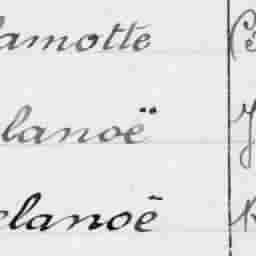 lamotte
lanoë
elanoë